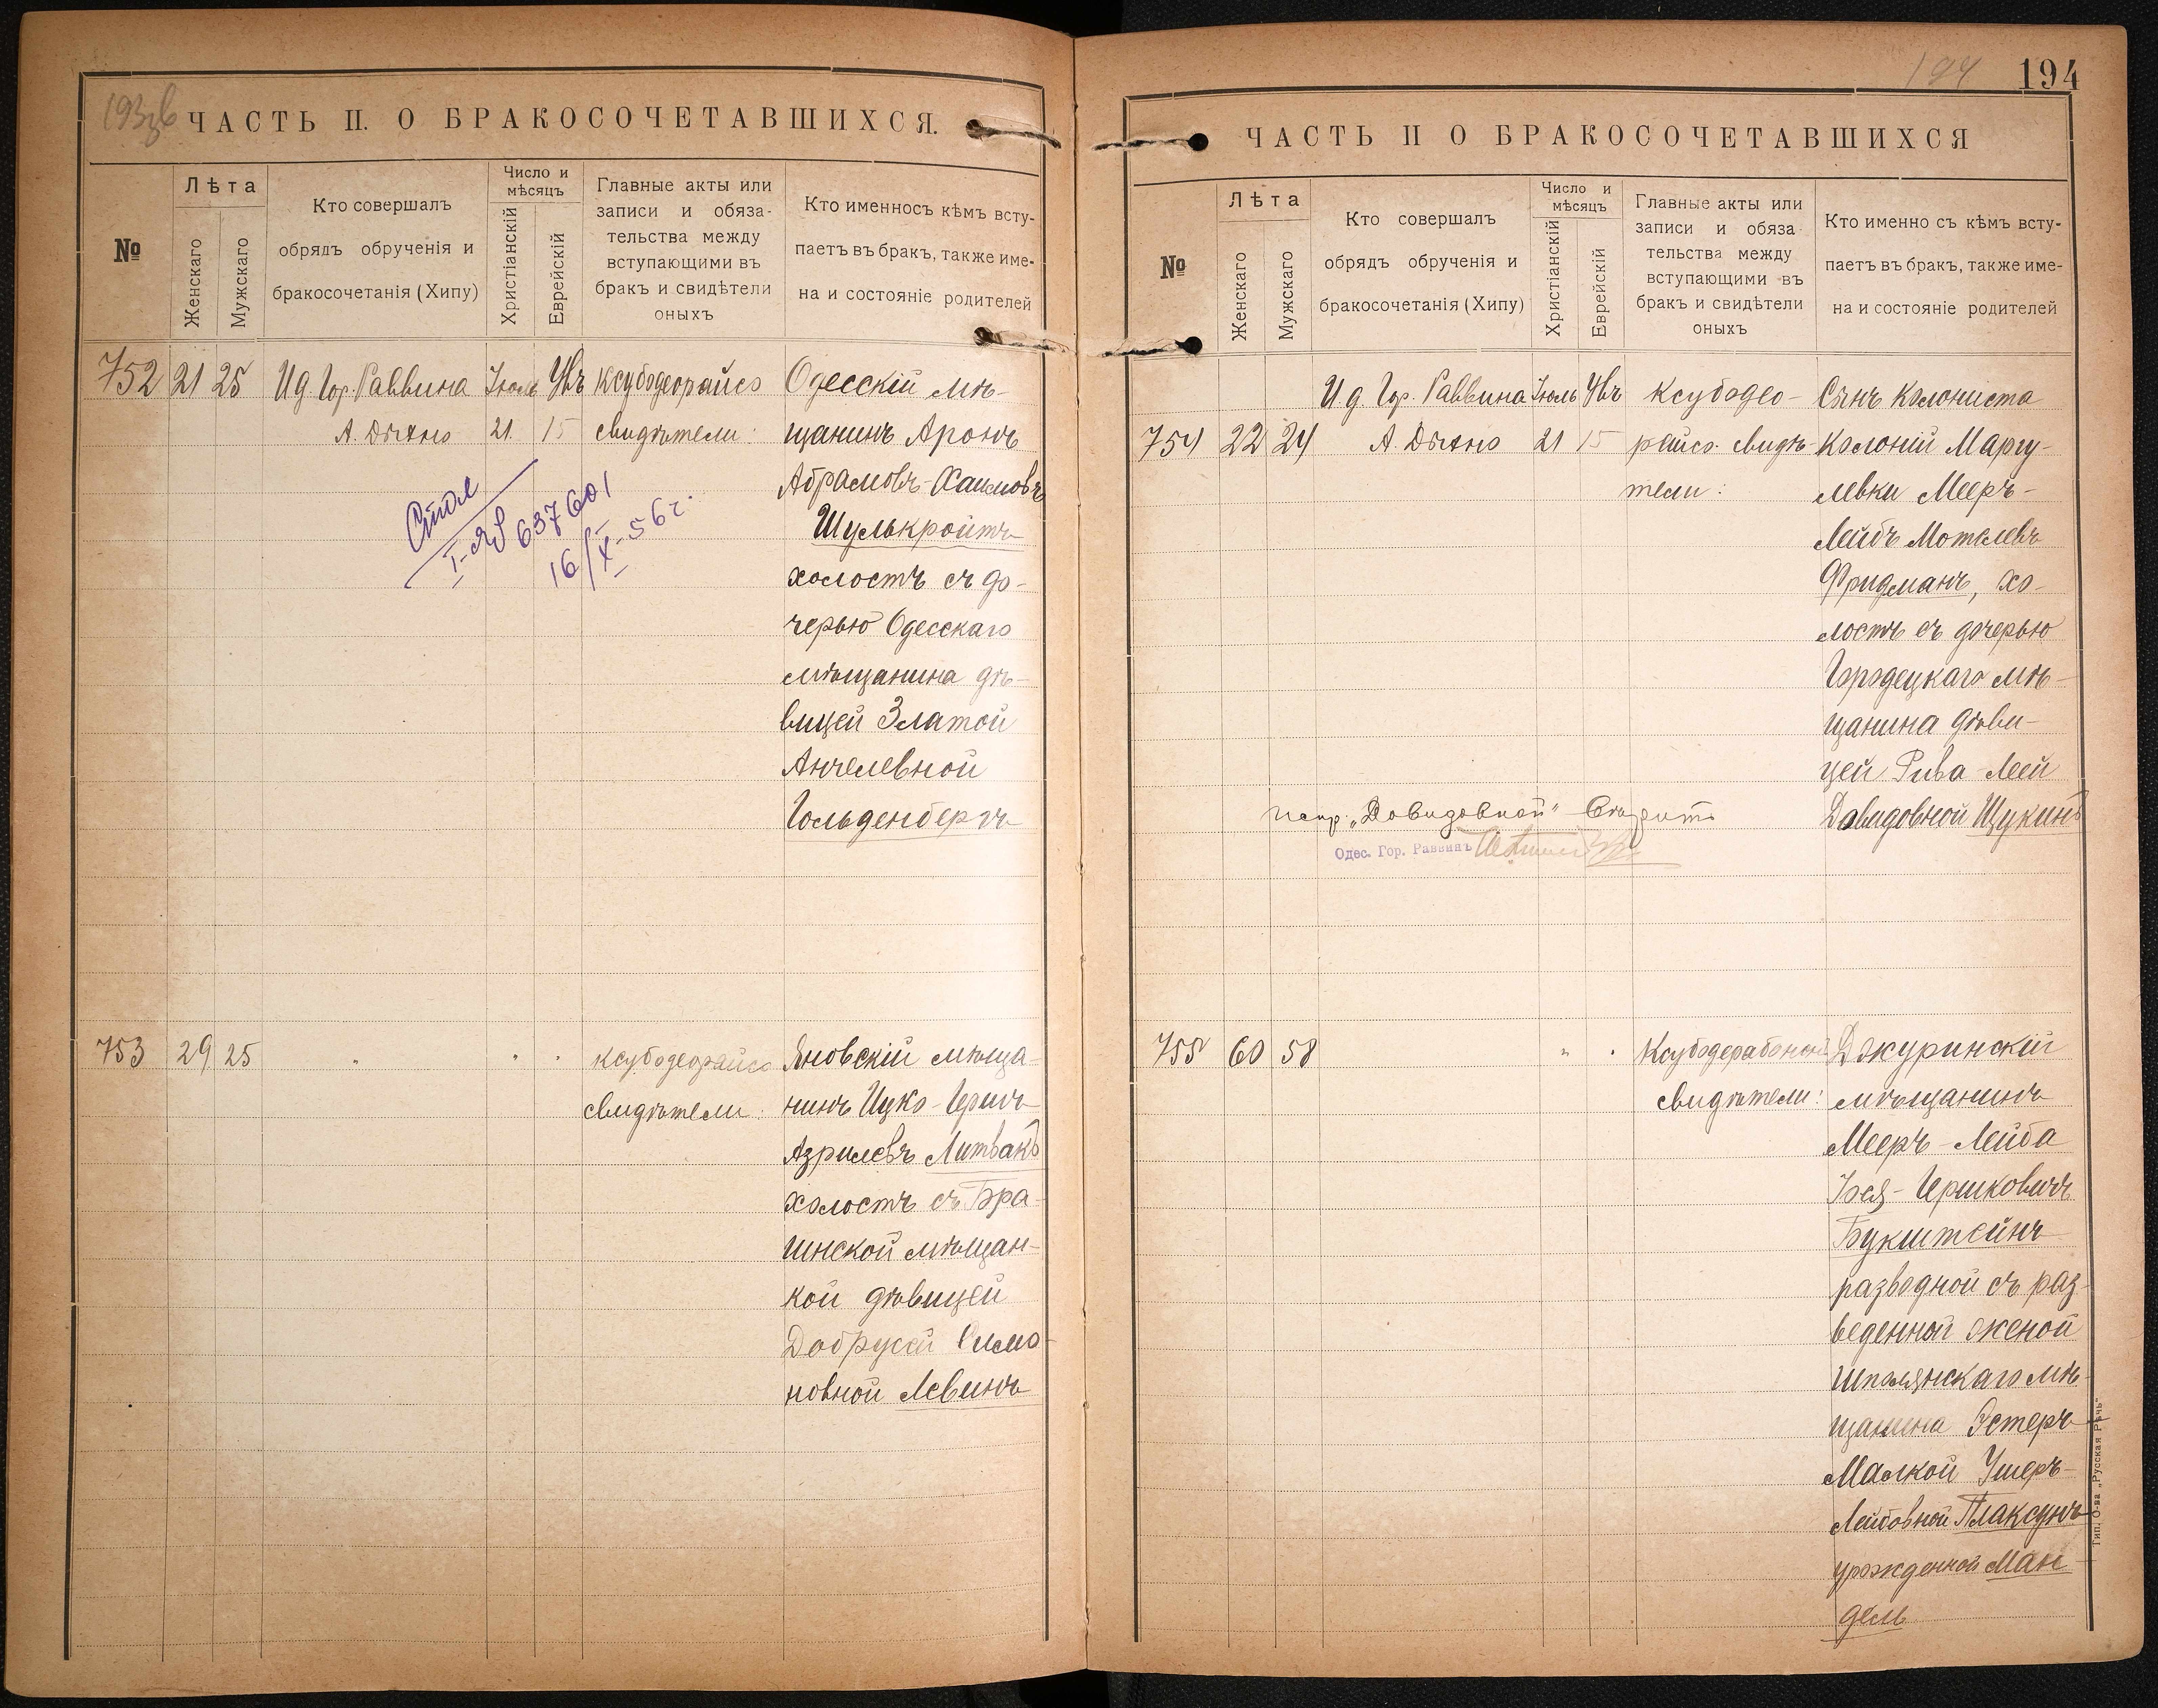 193 об
ЧАСТЬ II. О БРАКОСОЧЕТАВШИХСЯ.
№
Лѣта
Женскаго
Мужскаго
Кто совершалъ
обрядъ обрученія и
бракосочетанія (Хипу)
Число и
мѣсяцъ
Христіанскій
Еврейскій
Главные акты или
записи и обяза-
тельства между
вступающими въ
бракъ и свидѣтели
оныхъ
Кто именносъ кѣмъ всту-
паетъ въ бракъ, также име-
на и состояніе родителей
752 21 25 И д. Гор. Раввина Іюль Увъ ксубодеорайсо
А. Дыхно 21. 15 свидѣтели:
Одесскій мѣ-
щанинъ Аронъ
Абрамовъ-Хаимовъ
Шулькройтъ
холостъ съ до-
черью Одесскаго
мѣщанина дѣ-
вицей Златой
Анчелевной
Гольденбергъ
I-ЯЮ 637601
16/X-56 г.
753 29 25 " " " ксубодеорайсо
свидѣтели:
Яновскій мѣща-
нинъ Ицко-Гершъ
Азрилевъ Литвакъ
холостъ съ Бра-
инской мѣщан-
кой дѣвицей
Добрусей Симо-
новной Левинъ
194 194
ЧАСТЬ II О БРАКОСОЧЕТАВШИХСЯ
№
Лѣта
Женскаго
Мужскаго
Кто совершалъ
обрядъ обрученія и
бракосочетанія (Хипу)
Число и
мѣсяцъ
Христіанскій
Еврейскій
Главные акты или
записи и обяза
тельства между
вступающими въ
бракъ и свидѣтели
оныхъ
Кто именно съ кѣмъ всту-
паетъ въ бракъ, также име-
на и состояніе родителей
И д. Гор. Раввина Іюль Увъ ксубодео-
754 22 24 А. Дыхно 21 15 райсо. свидѣ-
тели:
Сынъ колониста
колоніи Маргу-
левки Мееръ-
Лейбъ Мотелевъ
Фридманъ, хо-
лостъ съ дочерью
Городецкаго мѣ-
щанина дѣви-
цей Рива-Леей
Давидовной Щукинъ
испр. „Довидовной" вѣрить
Одес. Гор. Раввинъ
755 60 58 " " Ксубодерабонон
свидѣтели:
Джуринскій
мѣщанинъ
Мееръ-Лейба
Іося-Гершковичъ
Букштейнъ
разводной съ раз-
веденной женой
Шполянскаго мѣ-
щанина Эстеръ-
Малкой Ушеръ-
Лейбовной Плаксунъ
урожденной Ман-
дель
Тип. О-ва „Русская Рѣчь"